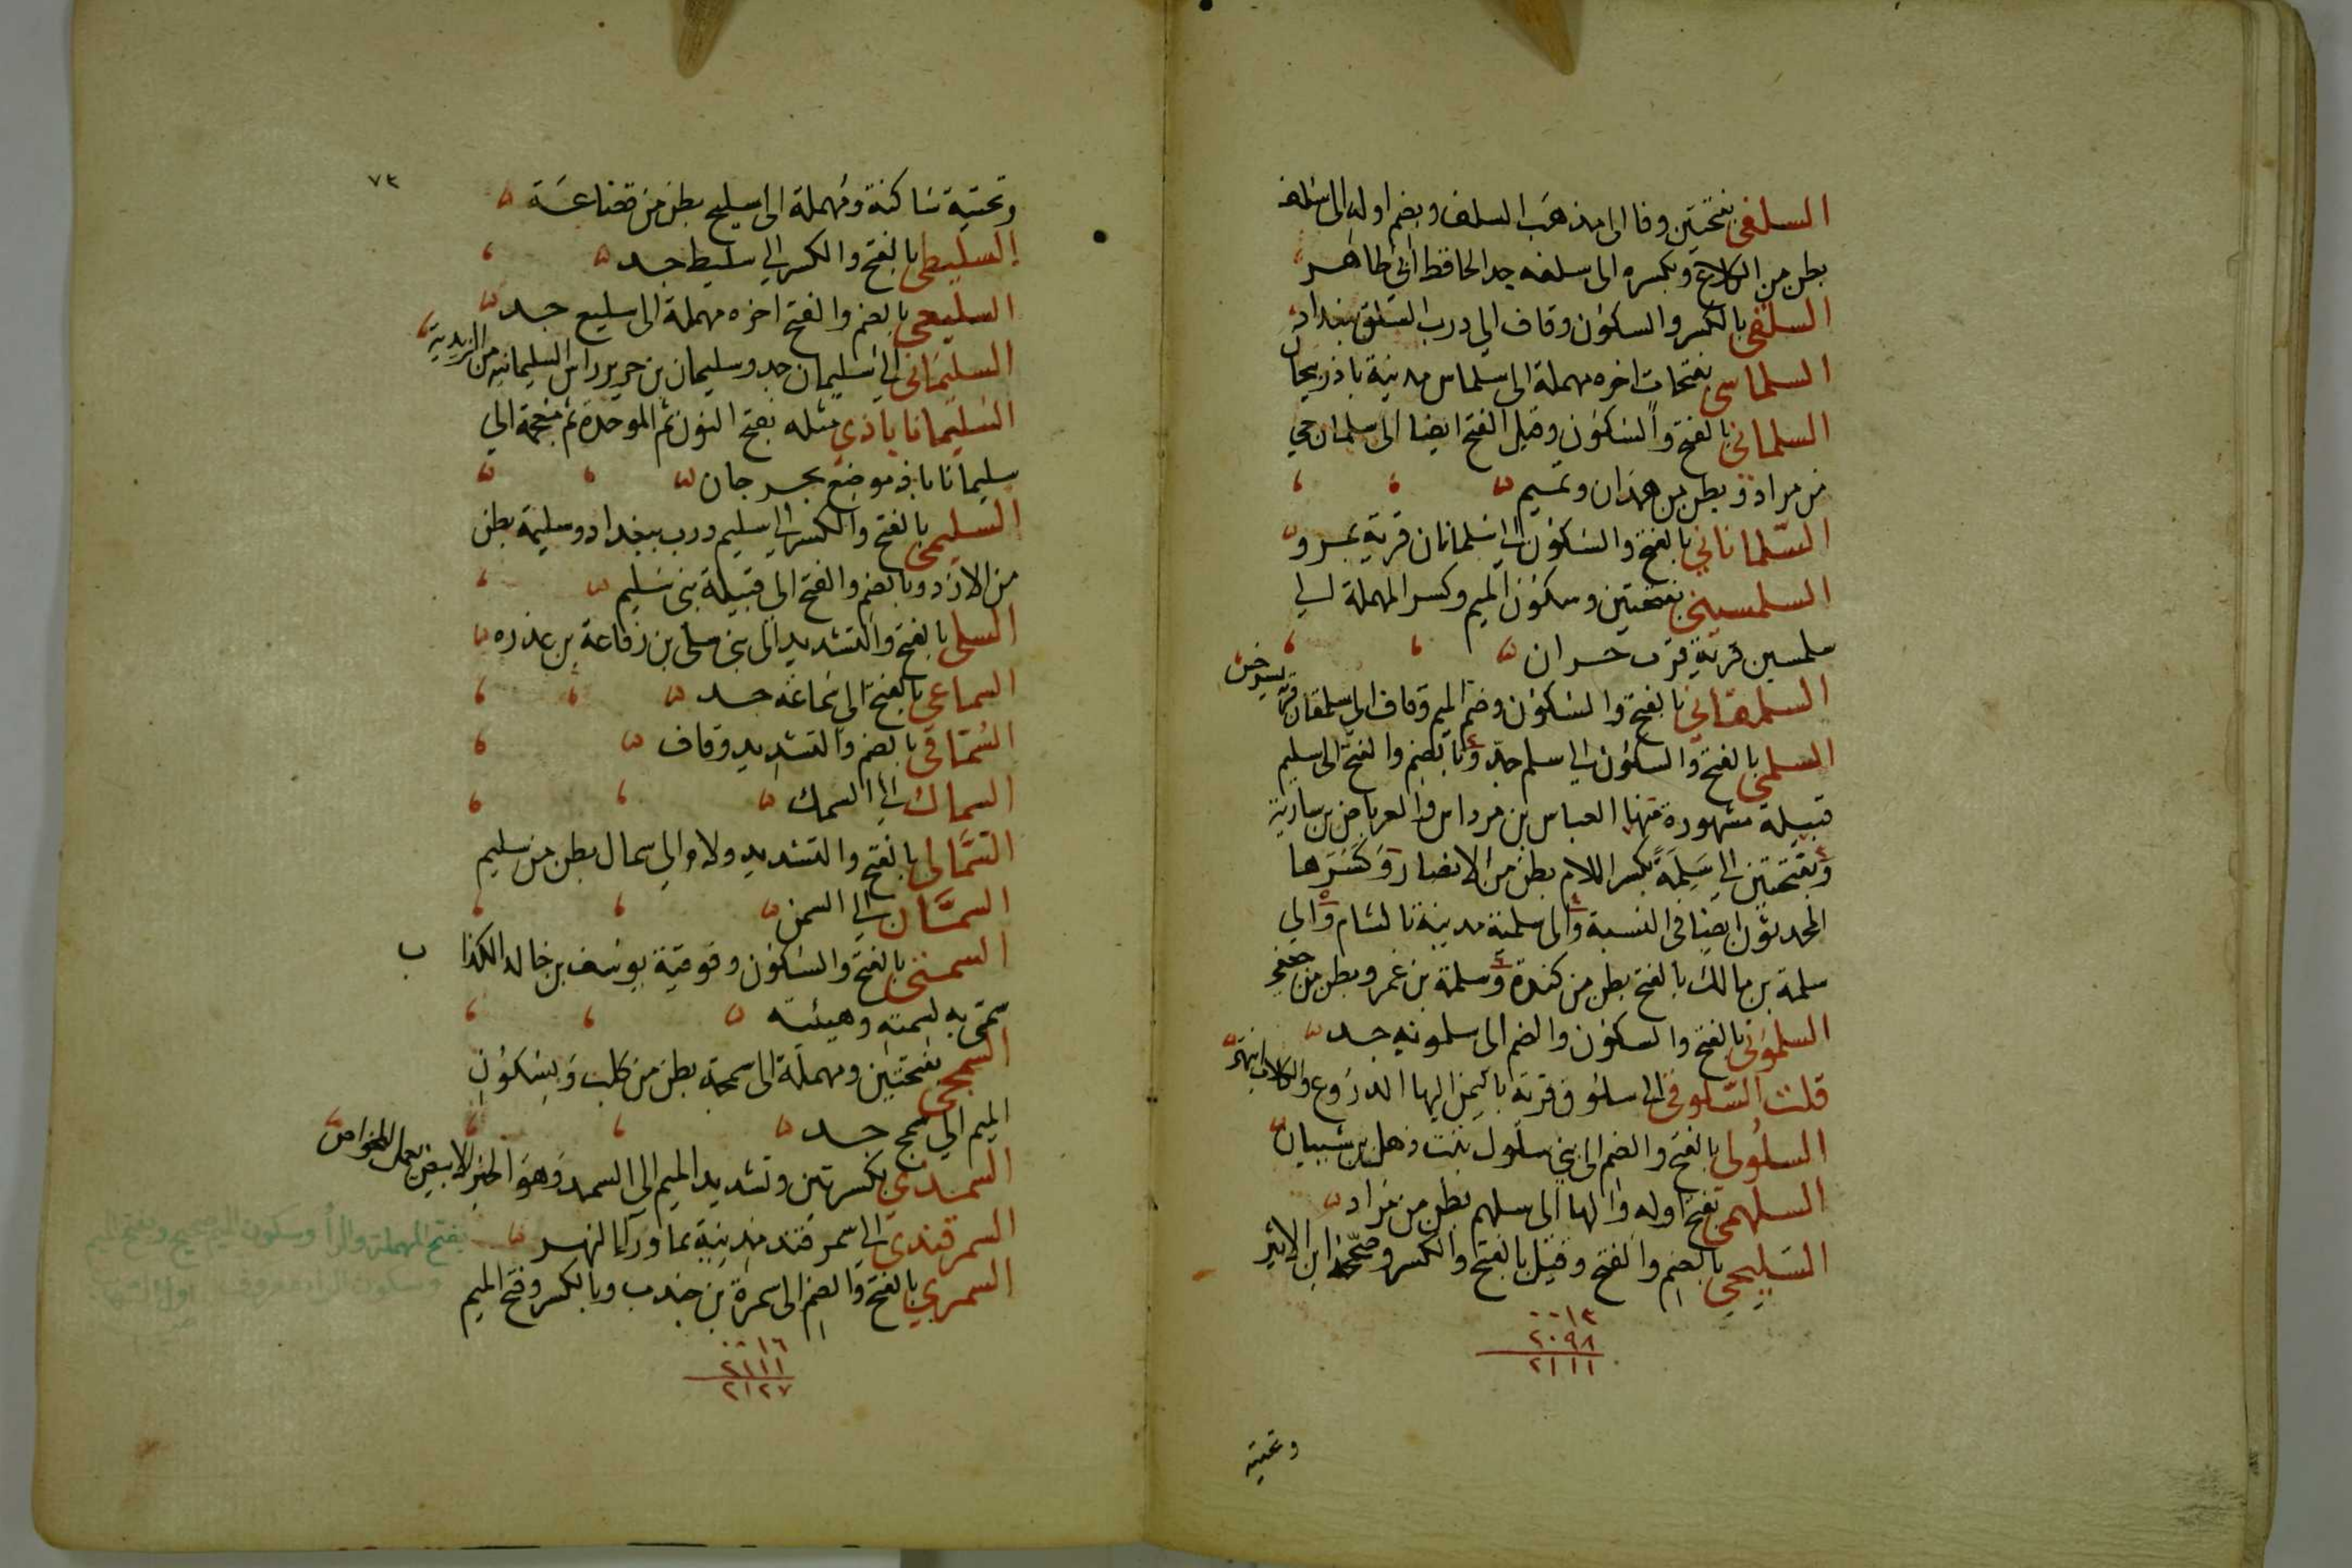 السلفي بفتحتين وفا الى مذهب السلف وبضم اوله الى سلف
بطن من الكلاع وبكسره الى سلفه جد الحافظ ابي طاهر
السلقي بالكسر والسكون وقاف الى درب السلق ببغداد
السلماسي بفتحات اخره مهملة الى سلماس مدينة باذربيجان
السلماني بالفتح والسكون وقيل الفتح ايضا الى سلمان حي
من مراد وبطن من همذان وتميم
السلماناني بالفتح والسكون الى سلمانان قرية بمرو
السلمسيني بفتحتين وسكون الميم وكسر المهملة الى
سلمسين قرية قرب حران
السلمقاني بالفتح والسكون وضم الميم وقاف الى سلمقان قرية بسرخس
السلمي بالفتح والسكون الى سلم جد وبالضم والفتح الى سليم
قبيلة مشهورة منها العباس بن مرداس والعرباض بن سارية
وبفتحتين الى سلمة بكسر اللام بطن من الانصار وكسرها
المحدثون ايضا في النسبة والى سلمية مدينة بالشام والى
سلمة بن مالك بالفتح بطن من كندة وسلمة بن عمرو بطن من جعفي
السلموني بالفتح والسكون والضم الى سلمونه جد
قلت السلوقي الى سلوق قرية باليمن اليها الدروع والكلاب انتهى
السلولي بالفتح والضم الى بني سلول بنت ذهل بن شيبان
السلهمي بفتح اوله والها الى سلهم بطن من مراد
السليحي بالضم والفتح وقيل بالفتح والكسر وصححه ابن الاثير
٠٠١٣
٢٠٩٨
٢١١١
وتحتية
٧٣
وتحتية ساكنة ومهملة الى سليح بطن من قضاعة
السليطي بالفتح والكسر الى سليط جد
السليعي بالضم والفتح اخره مهملة الى سليع جد
السليماني الى سليمان جد وسليمان بن جرير راس السليمانية من الزيدية
السليماناباذي مثله بفتح النون ثم الموحدة ثم معجمة الى
سليماناباذ موضع بجرجان
السليمي بالفتح والكسر الى سليم درب ببغداد وسليمة بطن
من الازد وبالضم والفتح الى قبيلة بني سليم
السلي بالفتح والتشديد الى بني سلي بن رفاعة بن عذره
السماعي بالفتح الى سماعة جد
السماقي بالضم والتشديد وقاف
السماك الى السمك
السمالي بالفتح والتشديد ولام الى سمال بطن من سليم
السمان الى السمن
السمتي بالفتح والسكون وفوقية يوسف بن خالد الكذا ب
سمي به لسمته وهيئته
السمحي بفتحتين ومهملة الى سمحة بطن من كلب وبسكون
الميم الى سمح جد
السمذي بكسرتين وتشديد الميم الى السمد وهو الخبز الابيض يعمل للخواص
السمرقندي الى سمرقند مدينة بما ورآ النهر
السمري بالفتح والضم الى سمرة بن جندب وبالكسر وفتح الميم
٠٠١٦
٢١١١
٢١٢٧
بفتح المهملة والرآ وسكون الميم صحيح وبفتح الميم
وسكون الراء معروف